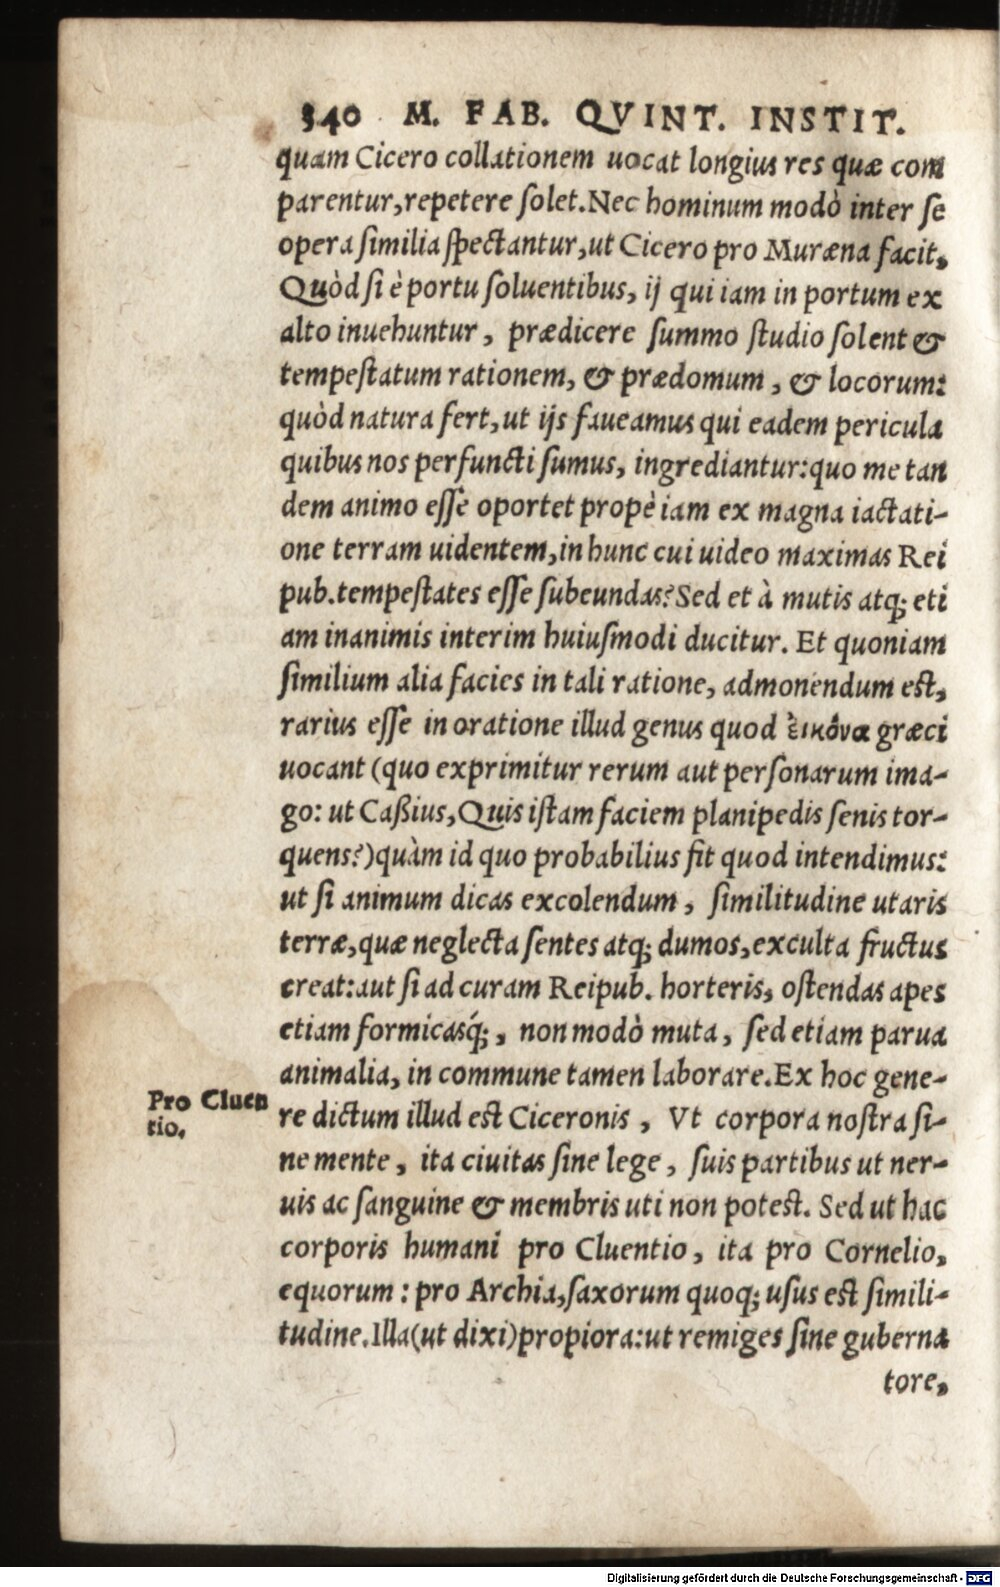 340 M. FAB. QVINT. INSTIT.
quam Cicero collationem uocat longius res quæ com
parentur,repetere solet.Nec hominum modò inter se
opera similia spectantur,ut Cicero pro Muræna facit,
Quòd si è portu soluentibus, ij qui iam in portum ex
alto inuehuntur, prædicere summo studio solent &
tempestatum rationem, & prædomum, & locorum:
quòd natura fert,ut ijs faueamus qui eadem pericula
quibus nos perfuncti sumus, ingrediantur:quo me tan
dem animo esse oportet propè iam ex magna iactati-
one terram uidentem,in hunc cui uideo maximas Rei
pub.tempestates esse subeundas?Sed et à mutis atq; eti
am inanimis interim huiusmodi ducitur. Et quoniam
similium alia facies in tali ratione, admonendum est,
rarius esse in oratione illud genus quod ἐικόνα græci
uocant (quo exprimitur rerum aut personarum ima-
go: ut Caßius,Quis istam faciem planipedis senis tor-
quens?)quàm id quo probabilius fit quod intendimus:
ut si animum dicas excolendum, similitudine utaris
terræ,quæ neglecta sentes atq; dumos,exculta fructus
creat:aut si ad curam Reipub. horteris, ostendas apes
etiam formicasq́;, non modò muta, sed etiam parua
animalia, in commune tamen laborare.Ex hoc gene-
Pro Cluen
tio.
re dictum illud est Ciceronis, Vt corpora nostra si-
ne mente, ita ciuitas sine lege, suis partibus ut ner-
uis ac sanguine & membris uti non potest. Sed ut hac
corporis humani pro Cluentio, ita pro Cornelio,
equorum: pro Archia,saxorum quoq; usus est simili-
tudine.Illa(ut dixi)propiora:ut remiges sine guberna
tore,
Digitalisierung gefördert durch die Deutsche Forschungsgemeinschaft - DFG